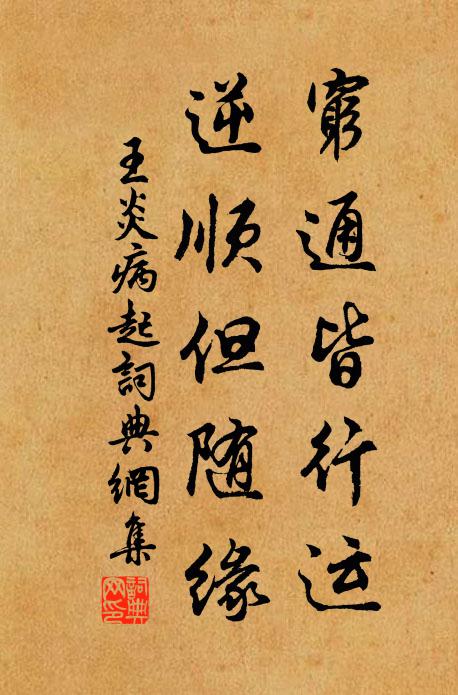 窮通皆行运
逆順但随緣
王炎病起詞典網集
詞典网印